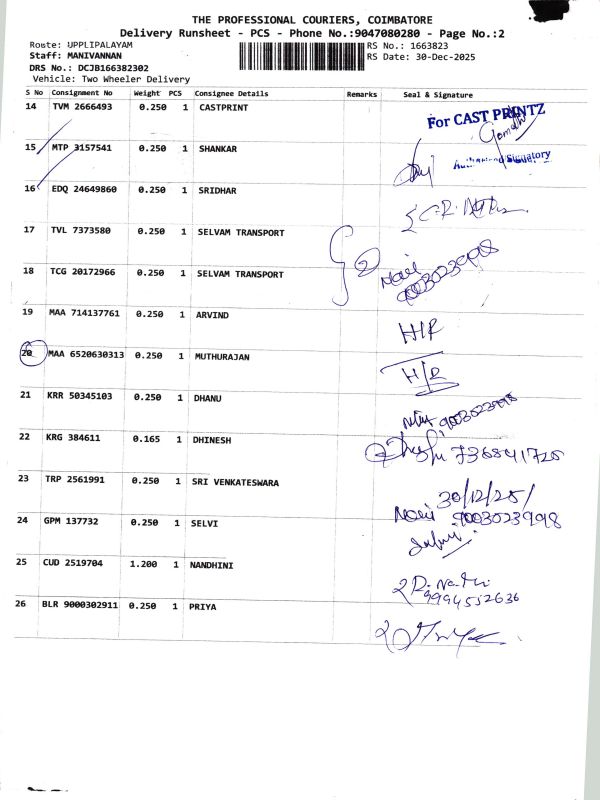 THE PROFESSIONAL COURIERS, COIMBATORE
Delivery Runsheet - PCS - Phone No.:9047080280 - Page No.:2
Route: UPPLIPALAYAM RS No.: 1663823
Staff: MANIVANNAN RS Date: 30-Dec-2025
DRS No.: DCJB166382302
Vehicle: Two Wheeler Delivery
S No Consignment No Weight PCS Consignee Details Remarks Seal & Signature
14 TVM 2666493 0.250 1 CASTPRINT
For CAST PRINTZ
15 MTP 3157541 0.250 1 SHANKAR
Authorised Signatory
16 EDQ 24649860 0.250 1 SRIDHAR
17 TVL 7373580 0.250 1 SELVAM TRANSPORT
18 TCG 20172966 0.250 1 SELVAM TRANSPORT
2
9003023998
19 MAA 714137761 0.250 1 ARVIND
H/R
20 MAA 6520630313 0.250 1 MUTHURAJAN
H/R
21 KRR 50345103 0.250 1 DHANU
9003023998
22 KRG 384611 0.165 1 DHINESH
736841725
23 TRP 2561991 0.250 1 SRI VENKATESWARA
30/12/25/
24 GPM 137732 0.250 1 SELVI
9003023998
25 CUD 2519704 1.200 1 NANDHINI
9994532636
26 BLR 9000302911 0.250 1 PRIYA